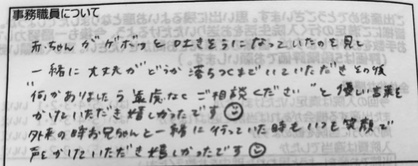 事務職員について
赤ちゃんがゲボッと吐きそうになっていたのを見て
一緒に大丈夫かどうか落ちつくまでいていただきその後
"何かありましたら遠慮なくご相談ください"と優しい言葉を
かけていただき嬉しかったです☺
外来の時お兄ちゃんと一緒に行っていた時もいつも笑顔で
声をかけていただき嬉しかったです☺